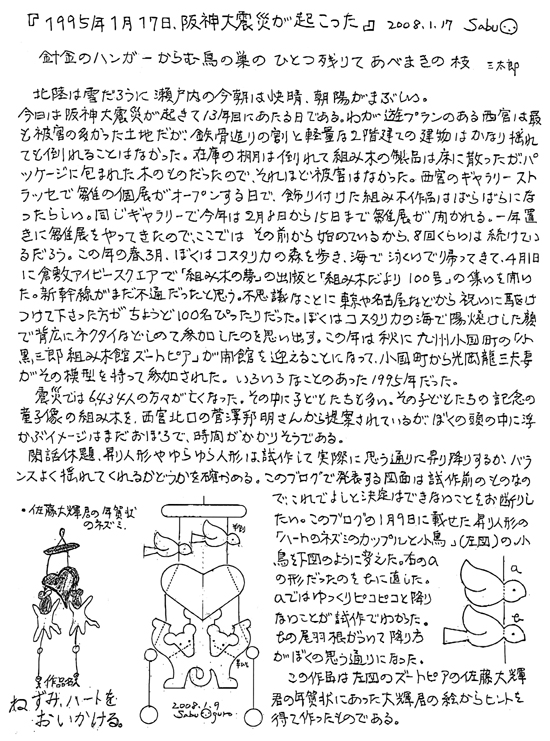 『1995年1月17日、阪神大震災が起こった』 2008.1.17 Sabu
針金のハンガーからむ鳥の巣の ひとつ残りて あべまきの枝 三太郎
北陸は雪だろうに 瀬戸内の今朝は快晴、朝陽がまぶしい。
今日は阪神大震災が起きて13年目にあたる日である。わが遊プランのある西宮は最
も被害の多かった土地だが、鉄骨造りの割と軽量な2階建ての建物はかなり揺れ
ても倒れることはなかった。在庫の棚は倒れて組み木の製品は床に散ったがパ
ッケージに包まれた木のものだったので、それほど被害はなかった。西宮のギャラリースト
ラッセで雛の個展がオープンする日で、飾り付けした組み木作品はばらばらにな
ったらしい。同じギャラリーで今年は2月8日から15日まで雛展が開かれる。一年置
きに雛展をやってきたので、ここでは その前から始めているから、8回くらいは続けてい
るだろう。この年の春3月、ぼくはコスタリカの森を歩き、海で泳いで帰ってきて、4月1日
に倉敷アイビースクエアで「組み木の夢」の出版と「組み木だより100号」の集いを開い
た。新幹線がまだ不通だったと思う。不思議なことに東京や名古屋などから祝いに駆け
つけて下さった方がちょうど100名ぴったりだった。ぼくはコスタリカの海で陽焼けした顔
で背広にネクタイなどしめて参加したのを思い出す。この年は秋に九州小国町の「小
黒三郎組み木館ズートピア」が開館を迎えることになって、小国町から光岡龍三夫妻
がその模型を持って参加された。いろいろなことのあった1995年だった。
震災では6434人の方々が亡くなった。その中に子どもたちも多い。その子どもたちの記念の
童子像の組み木を、西宮北口の菅澤邦明さんから提案されているがぼくの頭の中に浮
かぶイメージはまだおぼろで、時間がかかりそうである。
閑話休題、昇り人形やゆらゆら人形は、試作して実際に思う通りに昇り降りするか、バラ
ンスよく揺れてくれるかどうかを確かめる。このブログで発表する図面は試作前のものなの
で、これでよしと決定はできないことをお断りし
たい。このブログの1月9日に載せた昇り人形の
「ハートのネズミのカップルと小鳥」(左図)の小
鳥を下図のように考えた。右のa
の形だったのをbに直した。
aではゆっくりピコピコと降り
ないことが試作でわかった。
bの尾羽根がついて降り方
がぼくの思う通りになった。
この作品は左図のズートピアの佐藤大輝
君の年賀状にあった大輝君の絵からヒントを
得て作ったものである。
・佐藤大輝君の年賀状
のネズミ
ねずみ、ハートを
おいかける。
2008.1.9
Sabu Oguro
a
b